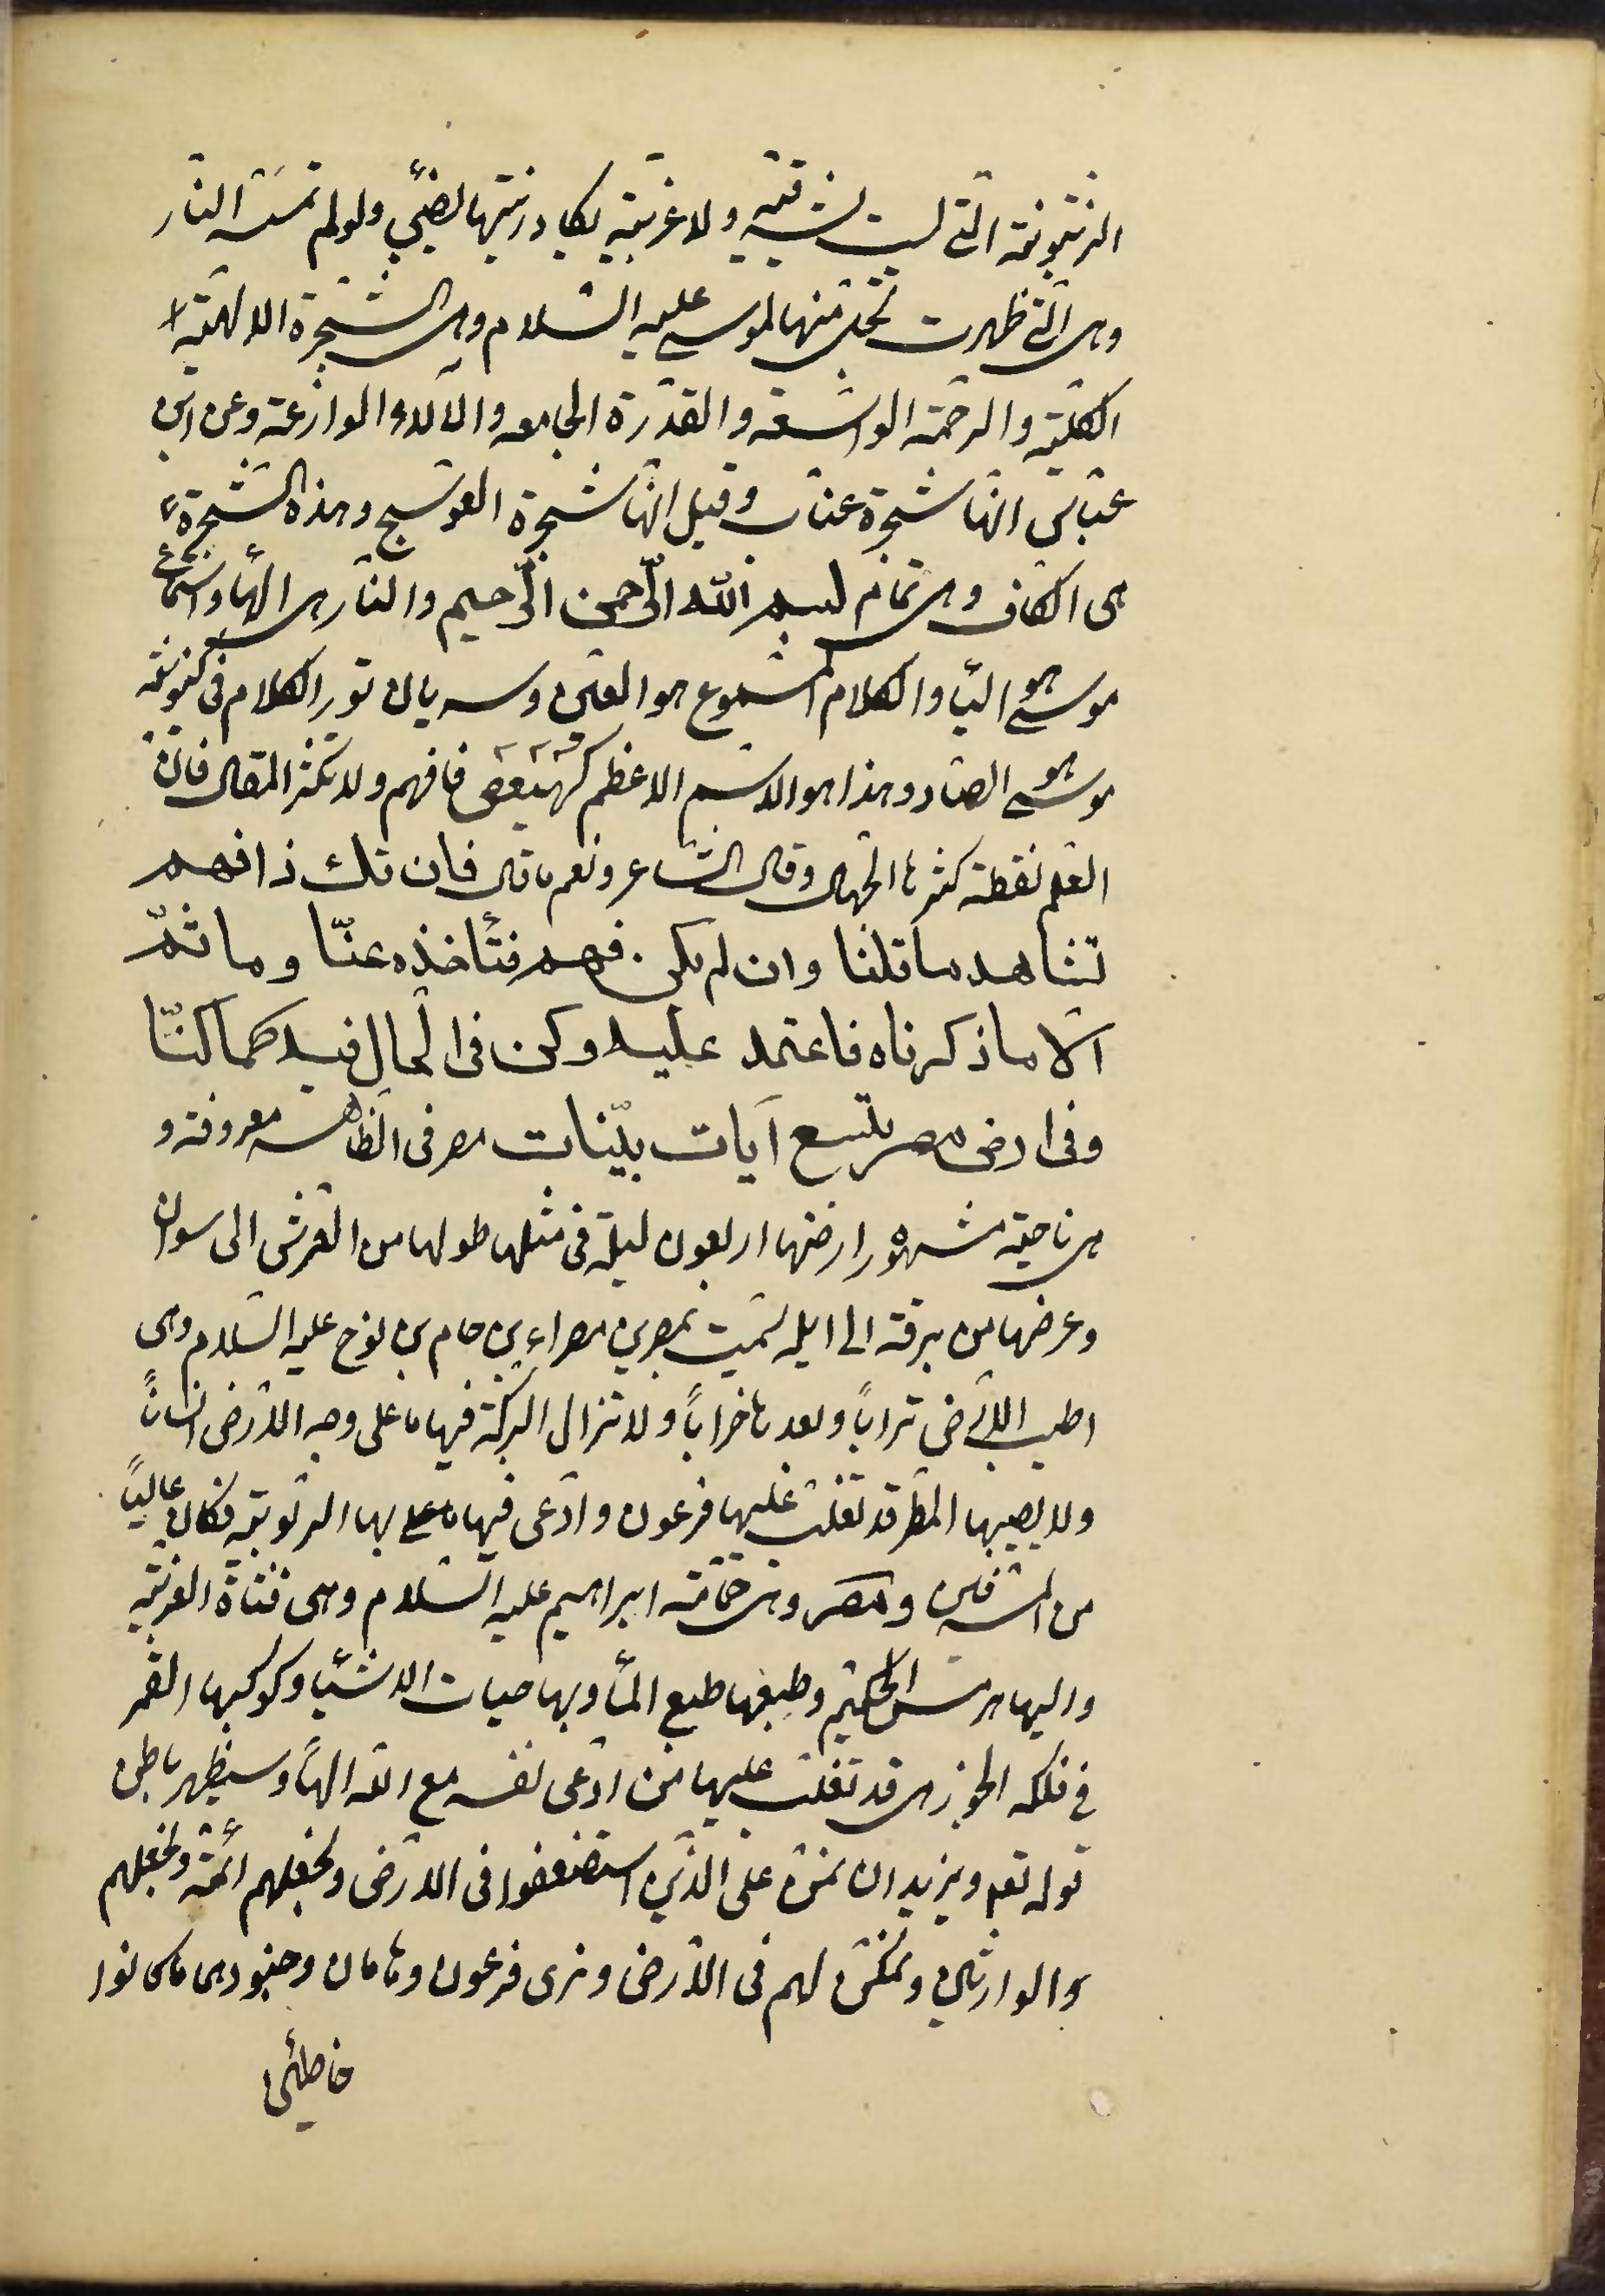 الزيتونة التى ليست بشرقية ولا غربية يكاد زيتها يضيئ ولو لم تمسسه النار
وهى التى ظهرت تجلى منها لموسى عليه السلام وهى الشجرة الالهية
الكلية والرحمة الواسعة والقدرة الجامعه والآلاء الوازعة وعن ابن
عباس انها شجرة عناب وقيل انها شجرة العوسج وهذه الشجرة
هى الكاف وهى تمام بسم الله الرحمن الرحيم والنار هى الهاء واستماع
موسى هو اليآء والكلام المسموع هو العين وسريان نور الكلام فى كينونة
موسى هو الصاد وهذا هو الاسم الاعظم كهيعص فافهم ولا تكثر المقال فان
العلم نقطة كثرها الجهال وقال الشاعر ونعم ما قال فان تك ذا فهم
تشاهد ما قلنا وان لم يكن فهم فتأخذه عنّا وما ثمّ
الّا ما ذكرناه فاعتمد عليه وكن فى الحال فيه كما كنّا
وفى ارض مصر بتسع آيات بيّنات مصر فى الظاهر معروفة و
هى ناحية مشهور ارضها اربعون ليلة فى مثلها طولها من العريش الى اسوان
وعرضها من برقة الى ايله سميت بمصر بن مصراء بن حام بن نوح عليه السلام وهى
اطيب الارض تراباً وبعدها خراباً ولا تزال البركة فيها ما على وجه الارض انساناً
ولا يصيبها المطر قد تغلب عليها فرعون وادعى فيها ما على بها الربوبية فكان عالياً
من المسرفين ومصر وهى ختامة ابراهيم عليه السلام وهى فتاة الغربية
واليها هرمس الحكيم وطبعها طبع المآء وبها حيات الاشياء وكوكبها القمر
فى فلكه الجوزهر قد تغلب عليها من ادعى لنفسه مع الله الهاً وسيظهر باطن
قوله تعم ونريد ان نمن على الذين استضعفوا فى الارض ونجعلهم ائمة ونجعلهم
الوارثين ونمكن لهم فى الارض ونرى فرعون وهامان وجنودهما كانوا
خاطئين